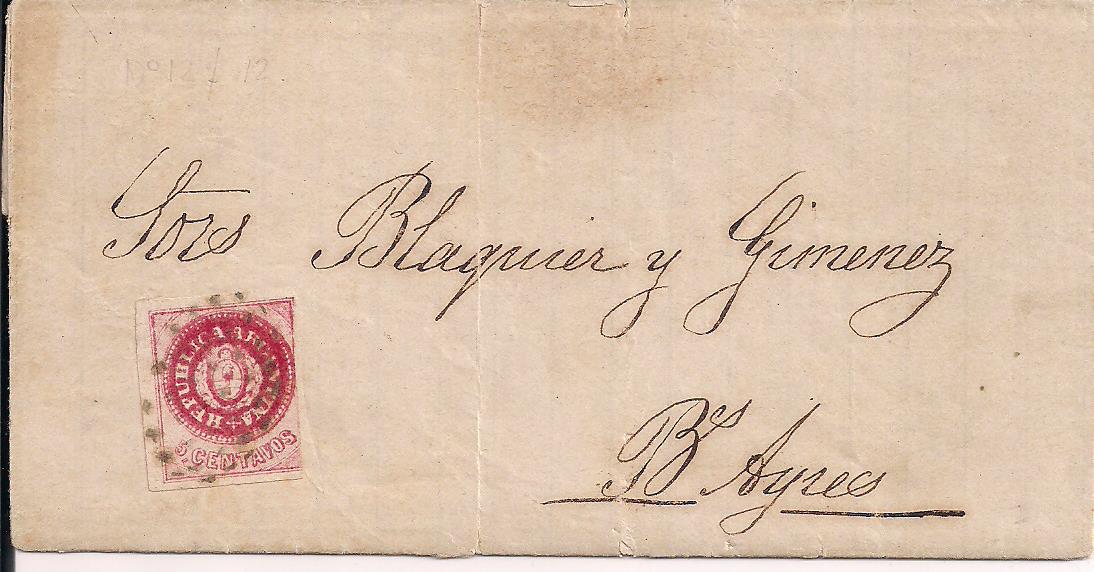 Sors Blaquier y Gimenez
REPUBLICA ARGENTINA
5. CENTAVOS
Bs Ayres